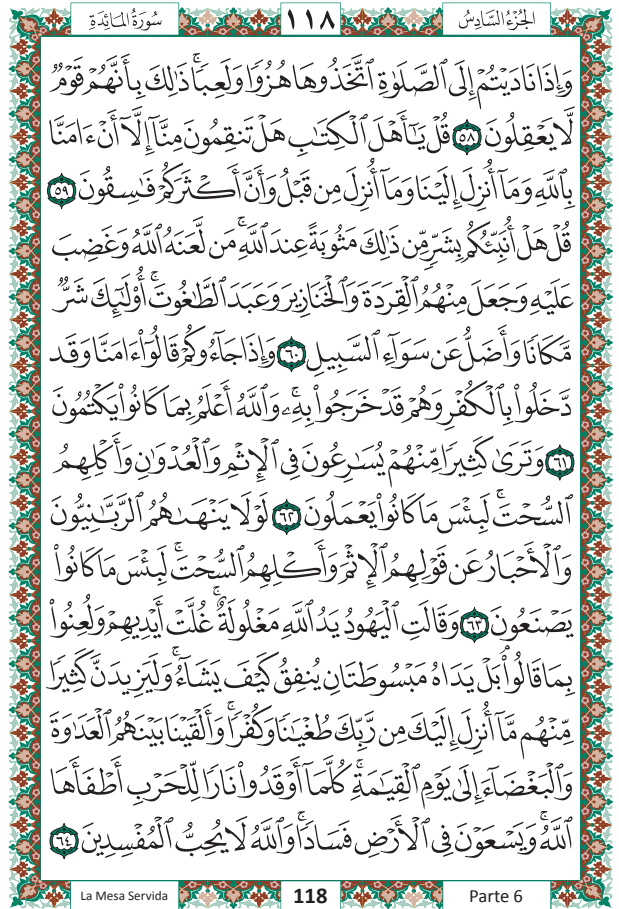 سُورَةُ المَائِدَةِ ١١٨ الجُزْءُ السَّادِسُ
وَإِذَا نَادَيْتُمْ إِلَى ٱلصَّلَوٰةِ ٱتَّخَذُوهَا هُزُوًا وَلَعِبًا ۚ ذَٰلِكَ بِأَنَّهُمْ قَوْمٌ
لَّا يَعْقِلُونَ ٥٨ قُلْ يَـٰٓأَهْلَ ٱلْكِتَـٰبِ هَلْ تَنقِمُونَ مِنَّآ إِلَّآ أَنْ ءَامَنَّا
بِٱللَّهِ وَمَآ أُنزِلَ إِلَيْنَا وَمَآ أُنزِلَ مِن قَبْلُ وَأَنَّ أَكْثَرَكُمْ فَـٰسِقُونَ ٥٩
قُلْ هَلْ أُنَبِّئُكُم بِشَرٍّ مِّن ذَٰلِكَ مَثُوبَةً عِندَ ٱللَّهِ ۚ مَن لَّعَنَهُ ٱللَّهُ وَغَضِبَ
عَلَيْهِ وَجَعَلَ مِنْهُمُ ٱلْقِرَدَةَ وَٱلْخَنَازِيرَ وَعَبَدَ ٱلطَّـٰغُوتَ ۚ أُو۟لَـٰٓئِكَ شَرٌّ
مَّكَانًا وَأَضَلُّ عَن سَوَآءِ ٱلسَّبِيلِ ٦٠ وَإِذَا جَآءُوكُمْ قَالُوٓا۟ ءَامَنَّا وَقَد
دَّخَلُوا۟ بِٱلْكُفْرِ وَهُمْ قَدْ خَرَجُوا۟ بِهِۦ ۚ وَٱللَّهُ أَعْلَمُ بِمَا كَانُوا۟ يَكْتُمُونَ
٦١ وَتَرَىٰ كَثِيرًا مِّنْهُمْ يُسَـٰرِعُونَ فِى ٱلْإِثْمِ وَٱلْعُدْوَٰنِ وَأَكْلِهِمُ
ٱلسُّحْتَ ۚ لَبِئْسَ مَا كَانُوا۟ يَعْمَلُونَ ٦٢ لَوْلَا يَنْهَىٰهُمُ ٱلرَّبَّـٰنِيُّونَ
وَٱلْأَحْبَارُ عَن قَوْلِهِمُ ٱلْإِثْمَ وَأَكْلِهِمُ ٱلسُّحْتَ ۚ لَبِئْسَ مَا كَانُوا۟
يَصْنَعُونَ ٦٣ وَقَالَتِ ٱلْيَهُودُ يَدُ ٱللَّهِ مَغْلُولَةٌ ۚ غُلَّتْ أَيْدِيهِمْ وَلُعِنُوا۟
بِمَا قَالُوا۟ ۘ بَلْ يَدَاهُ مَبْسُوطَتَانِ يُنفِقُ كَيْفَ يَشَآءُ ۚ وَلَيَزِيدَنَّ كَثِيرًا
مِّنْهُم مَّآ أُنزِلَ إِلَيْكَ مِن رَّبِّكَ طُغْيَـٰنًا وَكُفْرًا ۚ وَأَلْقَيْنَا بَيْنَهُمُ ٱلْعَدَٰوَةَ
وَٱلْبَغْضَآءَ إِلَىٰ يَوْمِ ٱلْقِيَـٰمَةِ ۚ كُلَّمَآ أَوْقَدُوا۟ نَارًا لِّلْحَرْبِ أَطْفَأَهَا
ٱللَّهُ ۚ وَيَسْعَوْنَ فِى ٱلْأَرْضِ فَسَادًا ۚ وَٱللَّهُ لَا يُحِبُّ ٱلْمُفْسِدِينَ ٦٤
La Mesa Servida 118 Parte 6